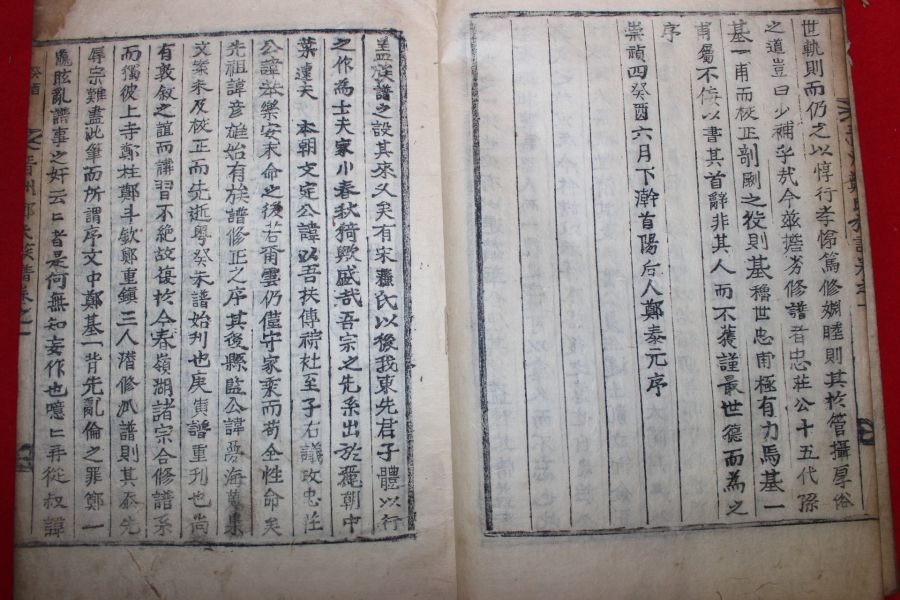 世軌則而仍之以惇行孝悌篤修婣睦則其於管攝厚俗
之道豈曰少補乎哉今玆嘗勞修譜者忠莊公十五代孫
基一甫而校正剞劂之役則基穆世忠甫極有力焉基一
甫屬不佞以書其首辭非其人而不獲謹最世德而為之
序
崇禎四癸酉六月下澣首陽后人鄭泰元序
盖族譜之設其來久矣有宋蘓氏以後我東先君子體以行
之作為士夫家小春秋猗歟盛哉吾宗之先系出於麗朝中
葉逮夫 本朝文定公諱以吾扶傳禘社至子右議政忠莊
公諱苯樂安末命之後若爾雲仍僅守家乘而苟全性命矣
先祖諱彦雄始有族譜修正之序其後縣監公諱夢海蒐集
文案未及校正而先逝粤癸未譜始刋也庚寅譜重刋也尚
有敦叙之誼而講習不絶故復於今春嶺湖諸宗合修譜系
而獨彼上寺鄭柱鄭斗欽鄭重鎭三人潜修派譜則其忝先
辱宗難盡此筆而所謂序文中鄭基一背先亂倫之罪鄭一
胤眩亂譜事之奸云〻者是何無知妄作也噫〻再從叔諱
癸酉
晋州鄭氏族譜卷之一